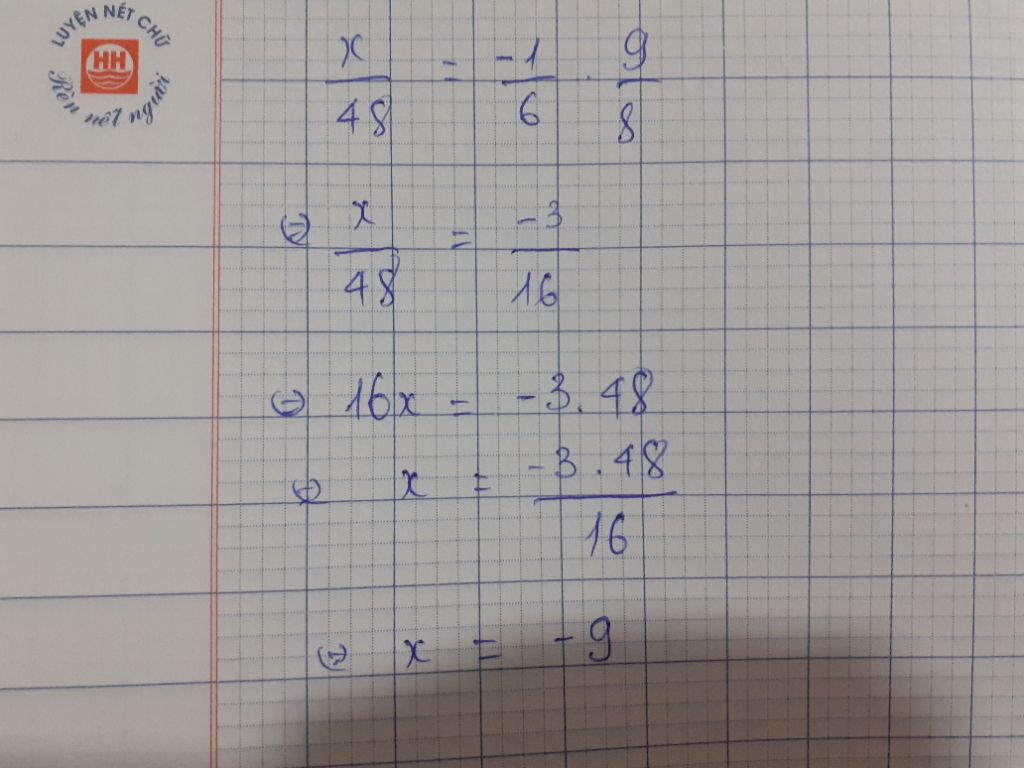 LUYỆN NÉT CHỮ
HH
Rèn nét người
x/48 = -1/6 . 9/8
⇔ x/48 = -3/16
⇔ 16x = -3.48
⇔ x = -3.48/16
⇔ x = -9